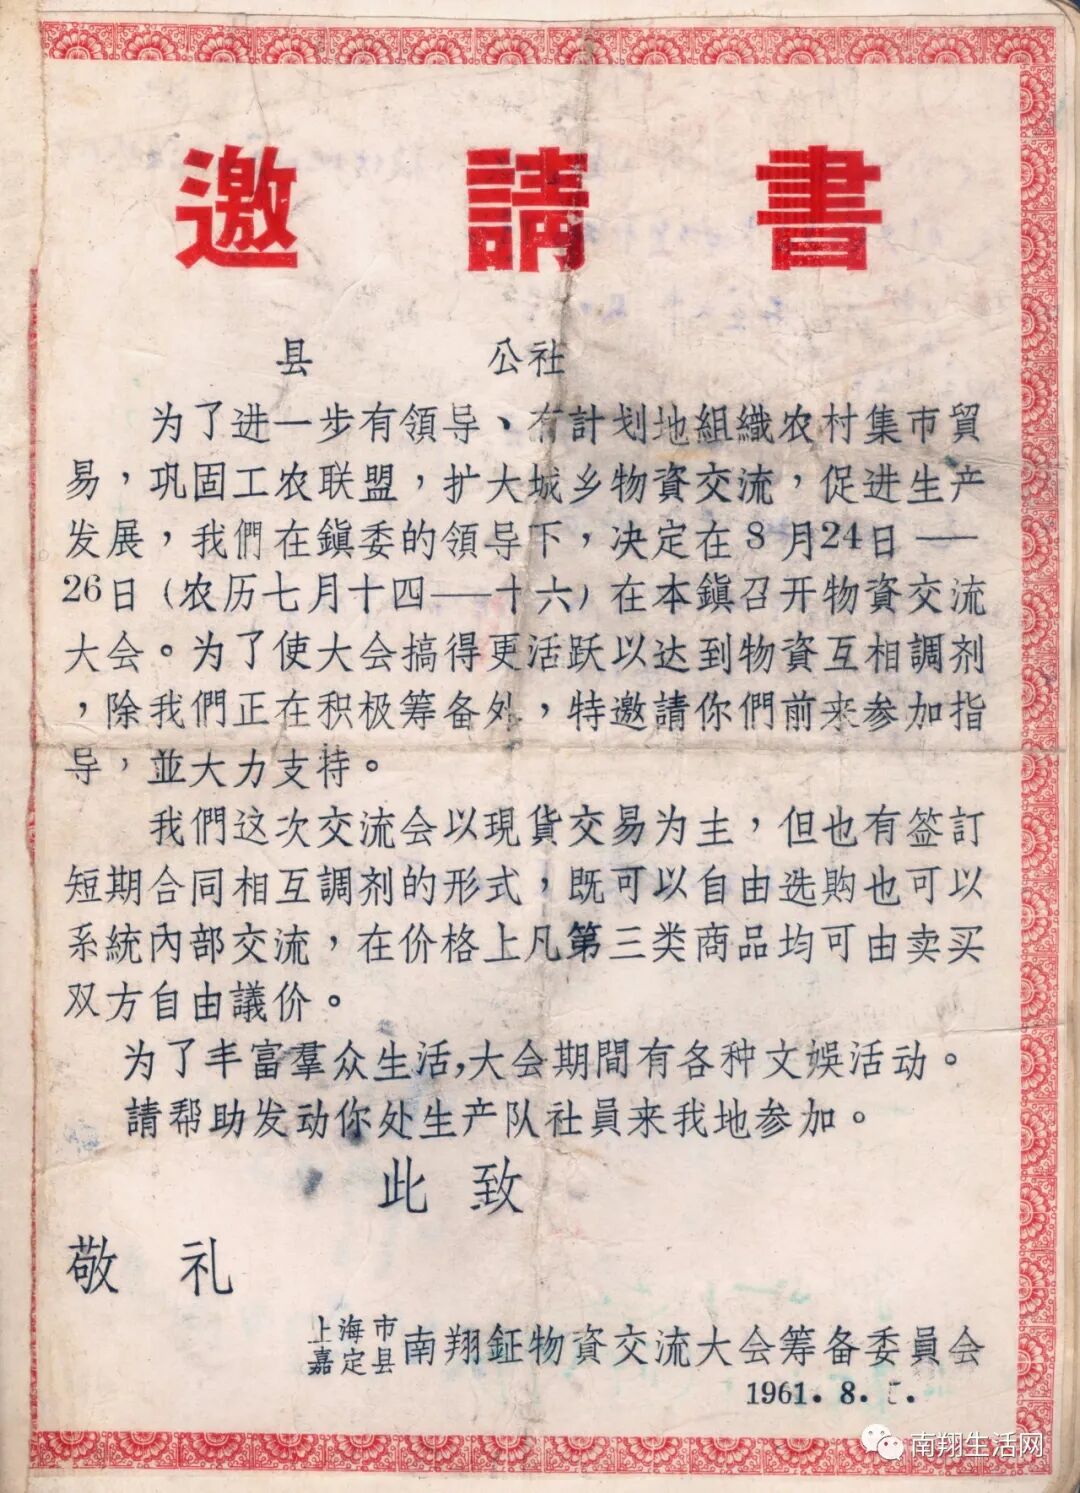 邀請書
县 公社
为了进一步有領导、有計划地組織农村集市貿
易，巩固工农联盟，扩大城乡物資交流，促进生产
发展，我們在鎭委的領导下，决定在8月24日——
26日（农历七月十四——十六）在本鎭召开物資交流
大会。为了使大会搞得更活跃以达到物資互相調剂
，除我們正在积极筹备外，特邀請你們前来参加指
导，並大力支持。
我們这次交流会以現貨交易为主，但也有签訂
短期合同相互調剂的形式，既可以自由选購也可以
系統內部交流，在价格上凡第三类商品均可由卖买
双方自由議价。
为了丰富羣众生活,大会期間有各种文娱活动。
請帮助发动你处生产队社員来我地参加。
此致
敬礼
上海市
嘉定县
南翔鉦物資交流大会筹备委員会
1961. 8. .
南翔生活网